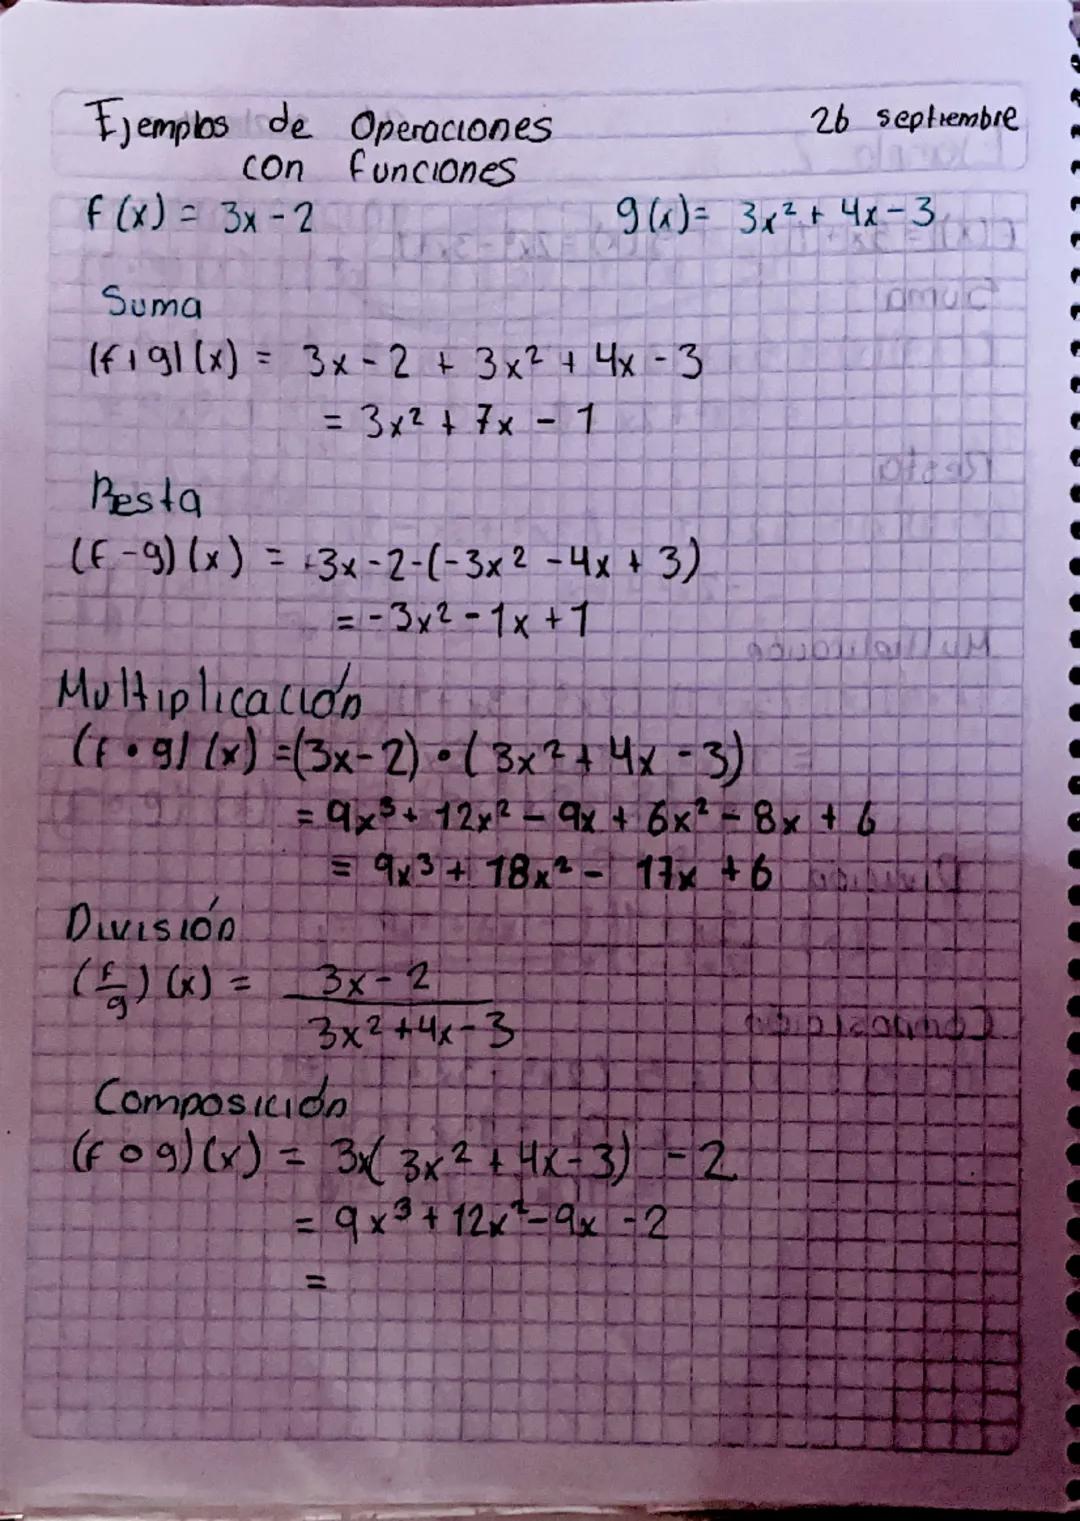 Ejemplos de Operaciones 26 septiembre
con funciones
f(x) = 3x - 2 g(x) = 3x² + 4x - 3
Suma
(f+g)(x) = 3x - 2 + 3x² + 4x - 3
= 3x² + 7x - 1
Resta
(f-g)(x) = 3x - 2 - (-3x² - 4x + 3)
= -3x² - 1x + 1
Multiplicación
(f•g)(x) = (3x - 2) • (3x² + 4x - 3)
= 9x³ + 12x² - 9x + 6x² - 8x + 6
= 9x³ + 18x² - 17x + 6
División
(f/g)(x) = 3x - 2
3x² + 4x - 3
Composición
(f o g)(x) = 3x(3x² + 4x - 3) - 2
= 9x³ + 12x² - 9x - 2
=